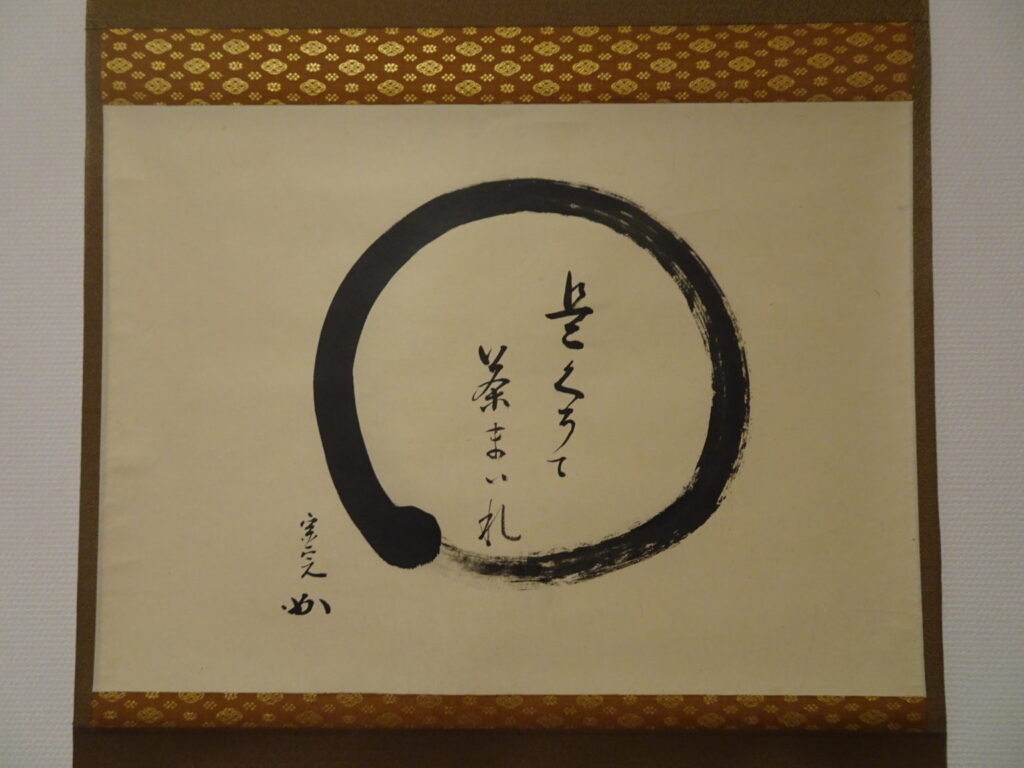 是くうて
茶まいれ
宗完